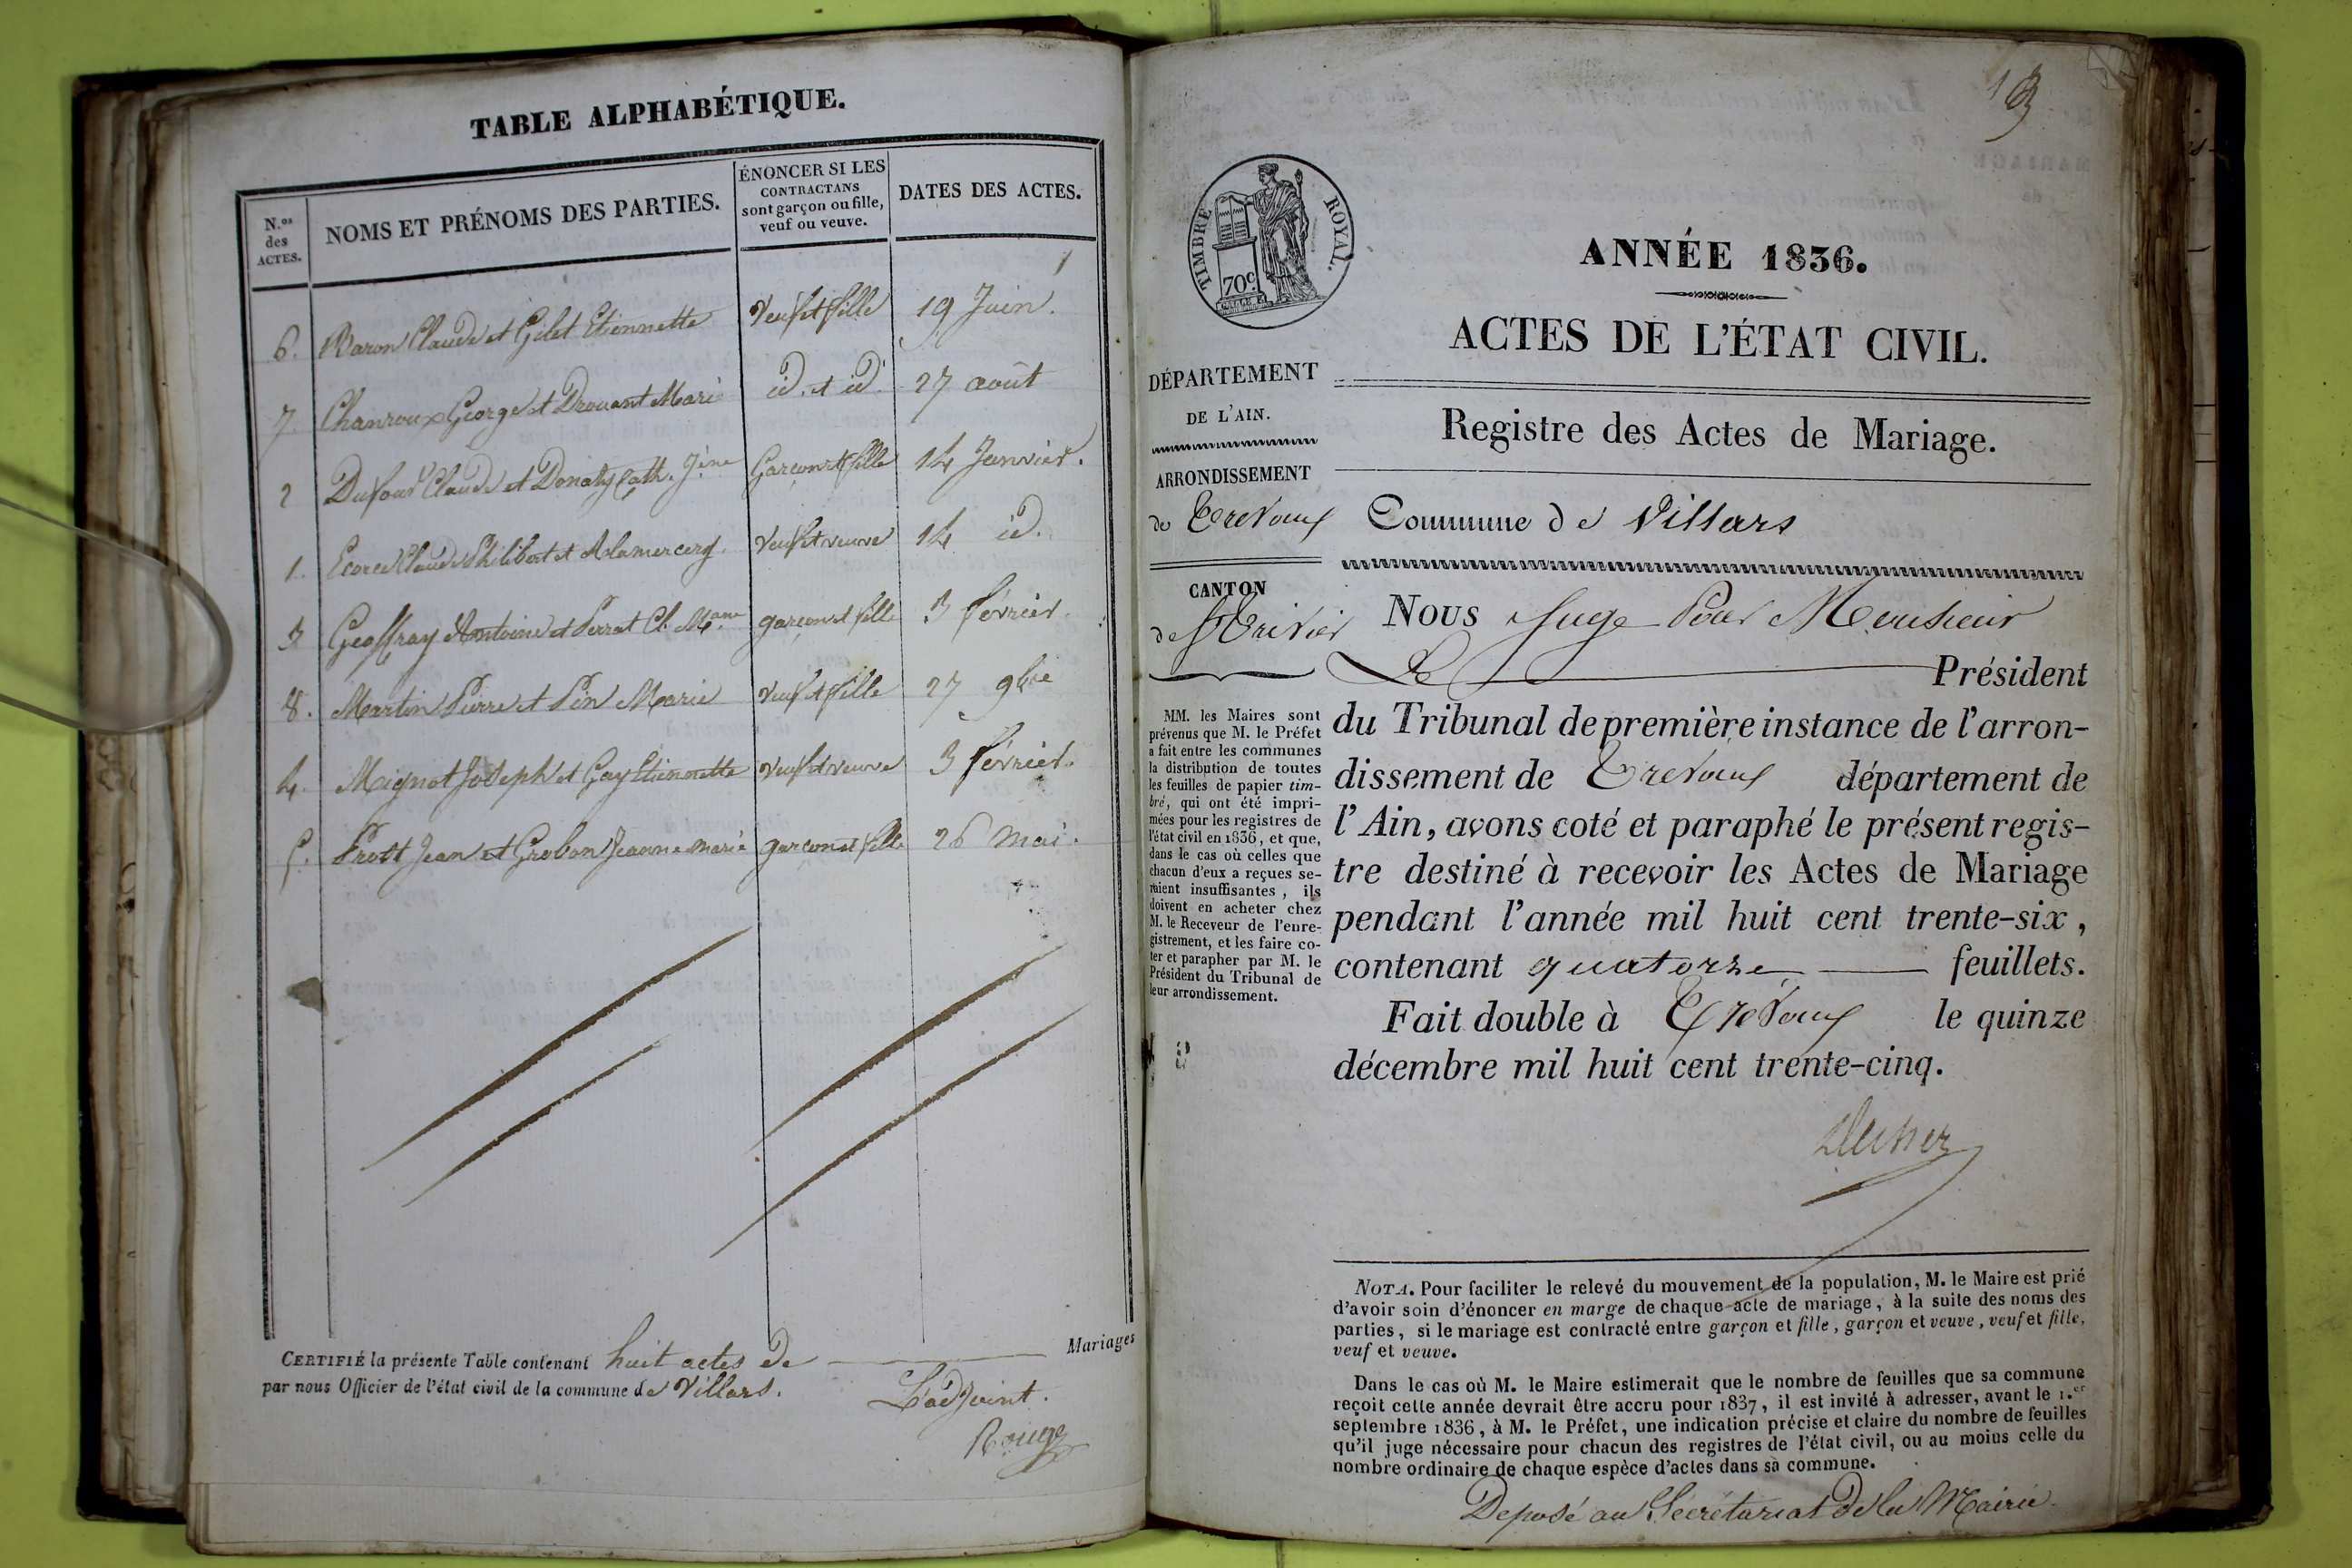 TABLE ALPHABÉTIQUE.
N.os des ACTES.
NOMS ET PRÉNOMS DES PARTIES.
ÉNONCER SI LES
CONTRACTANS
sont garçon ou fille,
veuf ou veuve.
DATES DES ACTES.
6. Baron Claude et Gilet Etiennette Veuf et fille 19 Juin.
7. Chanroux George et Drouant Marie id. et id. 27 août
2 Dufour Claude et Donaty Cath. Garçon et fille 14 Janvier.
1. Claude Philibert et Veuf et veuve 14 id.
3 Geoffray Antoine et Perrat Cl. garçon et fille 3 février.
8. Martin Pierre et Pin Marie Veuf et fille 27 9bre
4. Mignot Joseph et Gay Etiennette Veuf et veuve 3 février.
5. Prost Jean et Grobon Jeanne marie garçon et fille 26 mai.
CERTIFIÉ la présente Table contenant huit actes de Mariages
par nous Officier de l'état civil de la commune de Villars.
L'adjoint.
Rouge
TIMBRE ROYAL.
70c.
ANNÉE 1836.
ACTES DE L'ÉTAT CIVIL.
Registre des Actes de Mariage.
Commune de Villars
DÉPARTEMENT
DE L'AIN.
ARRONDISSEMENT
de Trevoux
CANTON
de St Trivier
MM. les Maires sont
prévenus que M. le Préfet
a fait entre les communes
la distribution de toutes
les feuilles de papier tim-
bré, qui ont été impri-
mées pour les registres de
l'état civil en 1836, et que,
dans le cas où celles que
chacun d'eux a reçues se-
raient insuffisantes, ils
doivent en acheter chez
M. le Receveur de l'enre-
gistrement, et les faire co-
ter et parapher par M. le
Président du Tribunal de
leur arrondissement.
NOUS Juge Pour Monsieur
Le Président
du Tribunal de première instance de l'arron-
dissement de Trevoux département de
l'Ain, avons coté et paraphé le présent regis-
tre destiné à recevoir les Actes de Mariage
pendant l'année mil huit cent trente-six,
contenant quatorze feuillets.
Fait double à Trevoux le quinze
décembre mil huit cent trente-cinq.
NOTA. Pour faciliter le relevé du mouvement de la population, M. le Maire est prié
d'avoir soin d'énoncer en marge de chaque acte de mariage, à la suite des noms des
parties, si le mariage est contracté entre garçon et fille, garçon et veuve, veuf et fille,
veuf et veuve.
Dans le cas où M. le Maire estimerait que le nombre de feuilles que sa commune
reçoit cette année devrait être accru pour 1837, il est invité à adresser, avant le 1.er
septembre 1836, à M. le Préfet, une indication précise et claire du nombre de feuilles
qu'il juge nécessaire pour chacun des registres de l'état civil, ou au moins celle du
nombre ordinaire de chaque espèce d'actes dans sa commune.
Deposé au Secrétariat de la Mairie